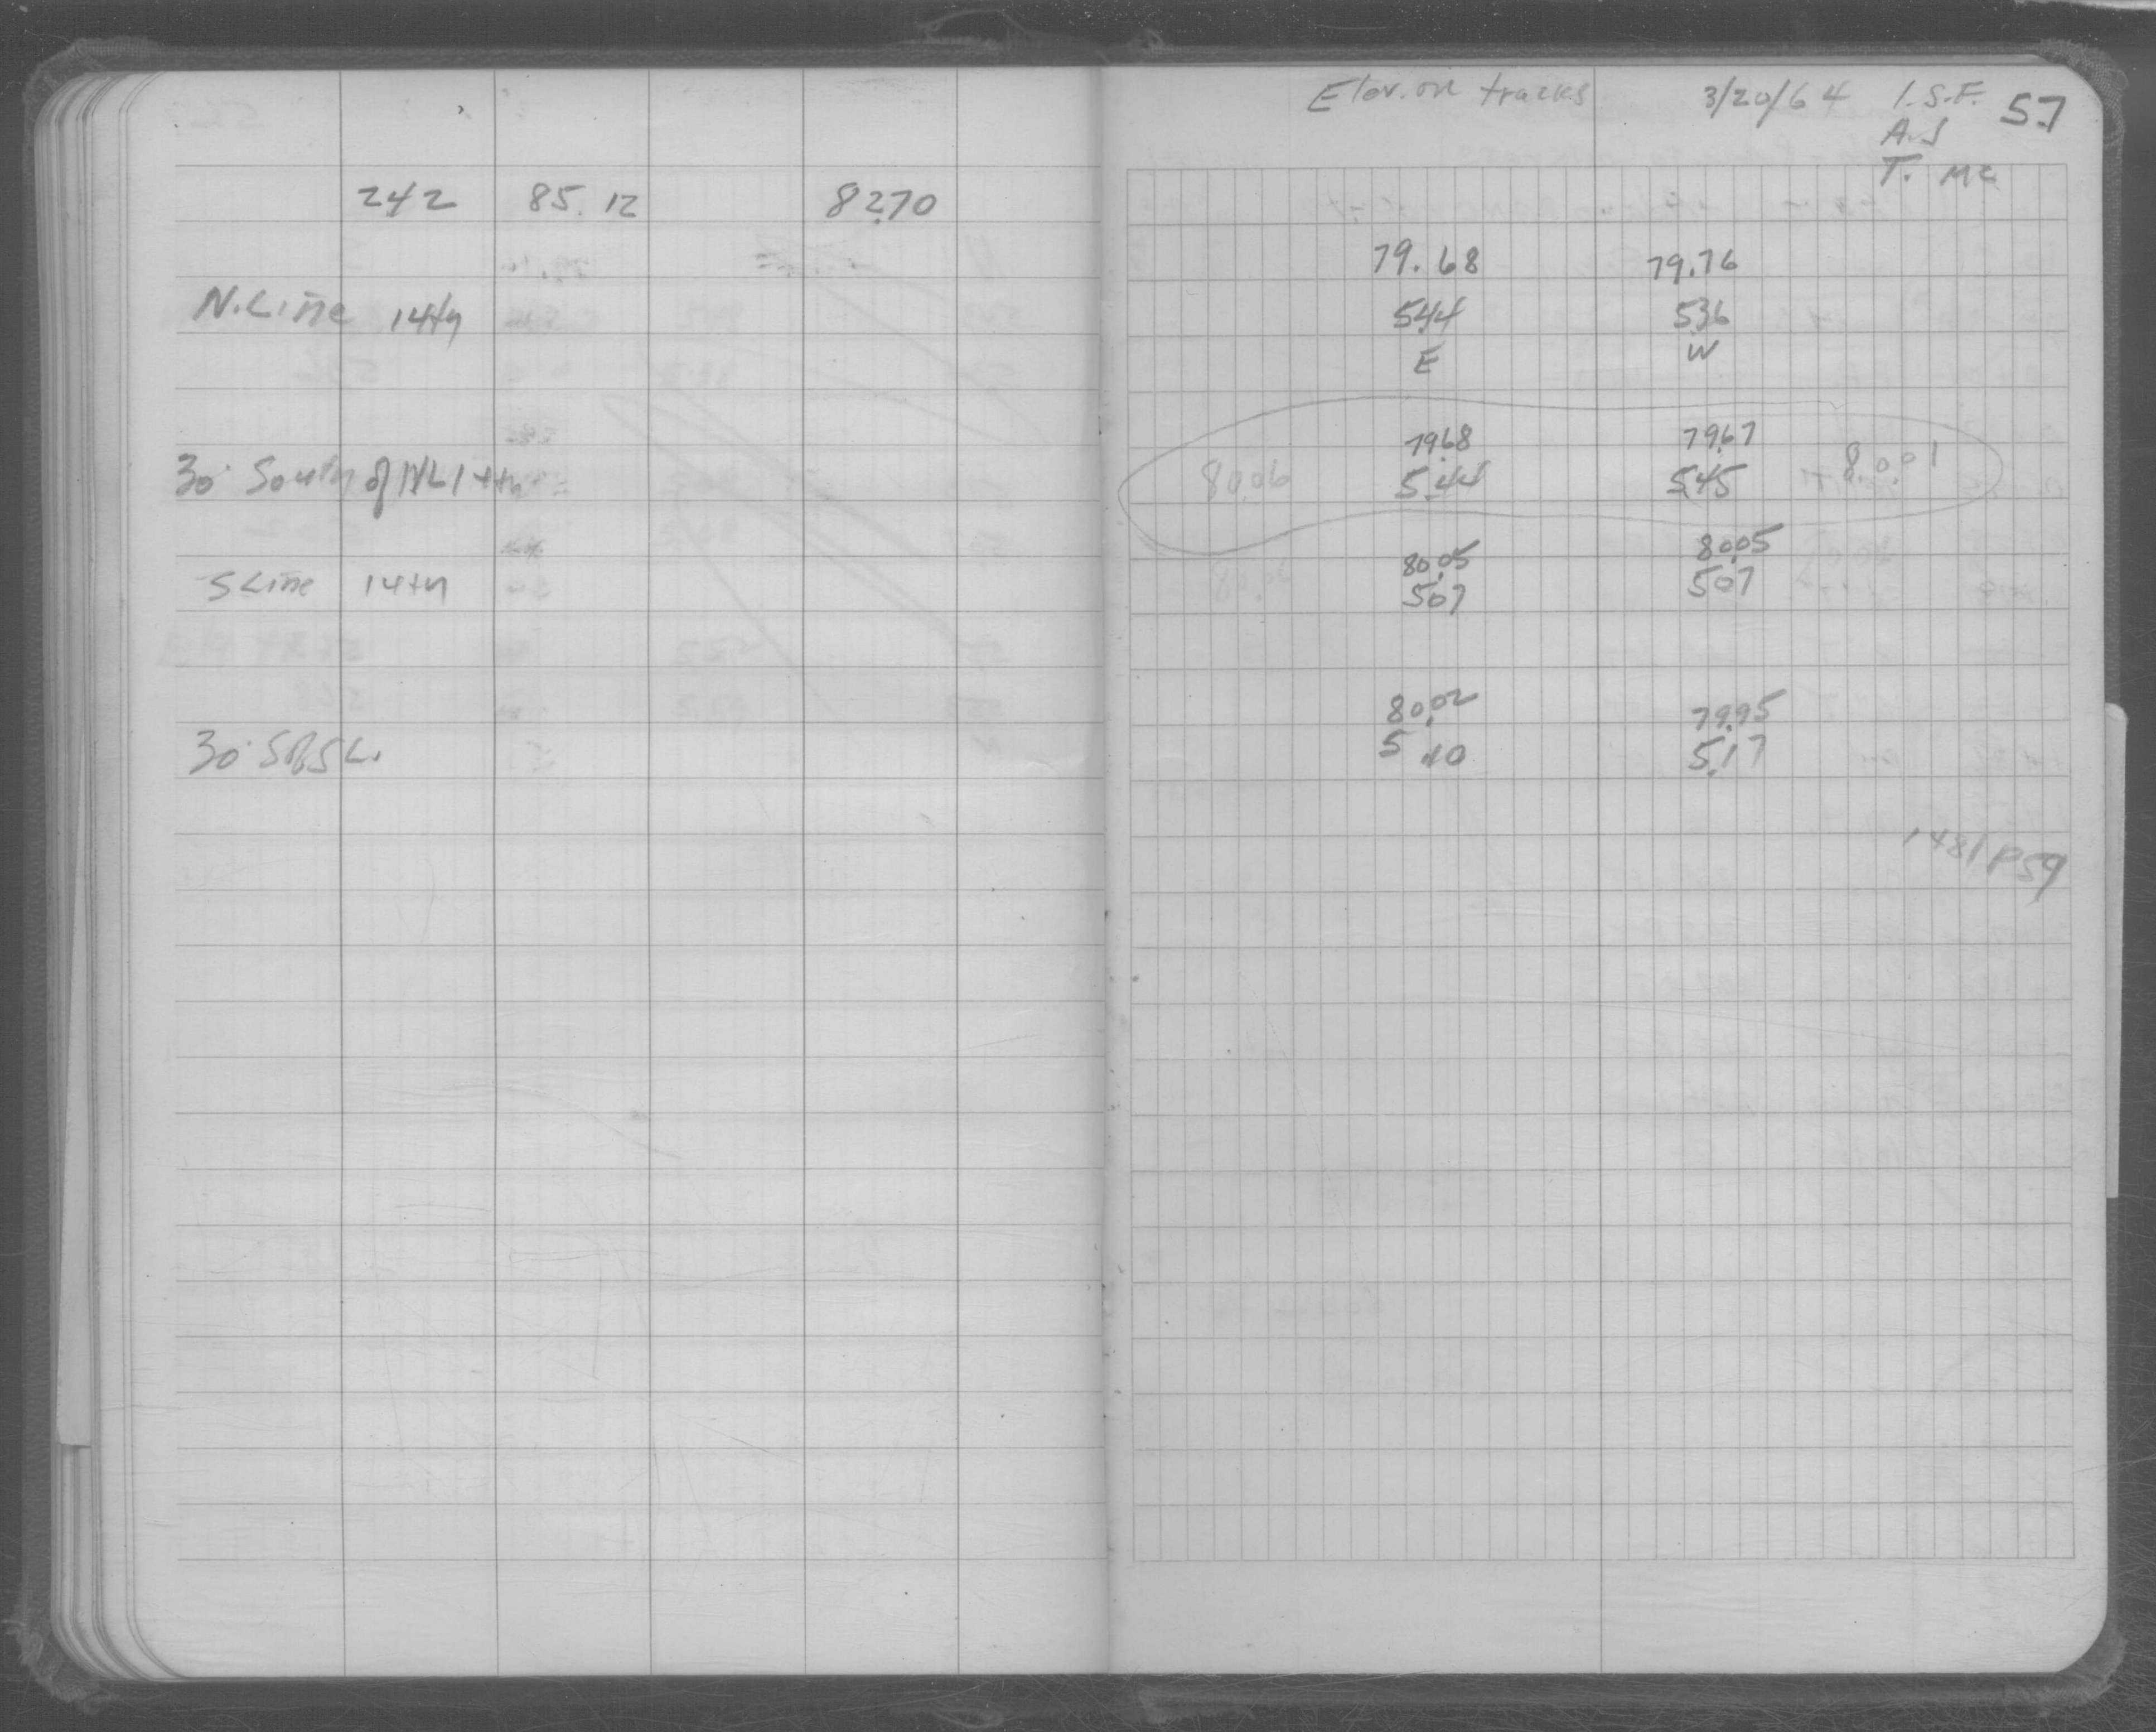 Elev. on tracks 3/20/64 I.S.F. 57
A.S
T. Mc
2.42 85.12 82.70
79.68 79.76
N. Line 14th 5.44 5.36
E W
79.68 79.67
30' South of NL 14th 80.06 5.44 5.45 80.01
80.05 80.05
S Line 14th 5.07 5.07
80.02 79.95
30' S of S L. 5.10 5.17
1481 P59